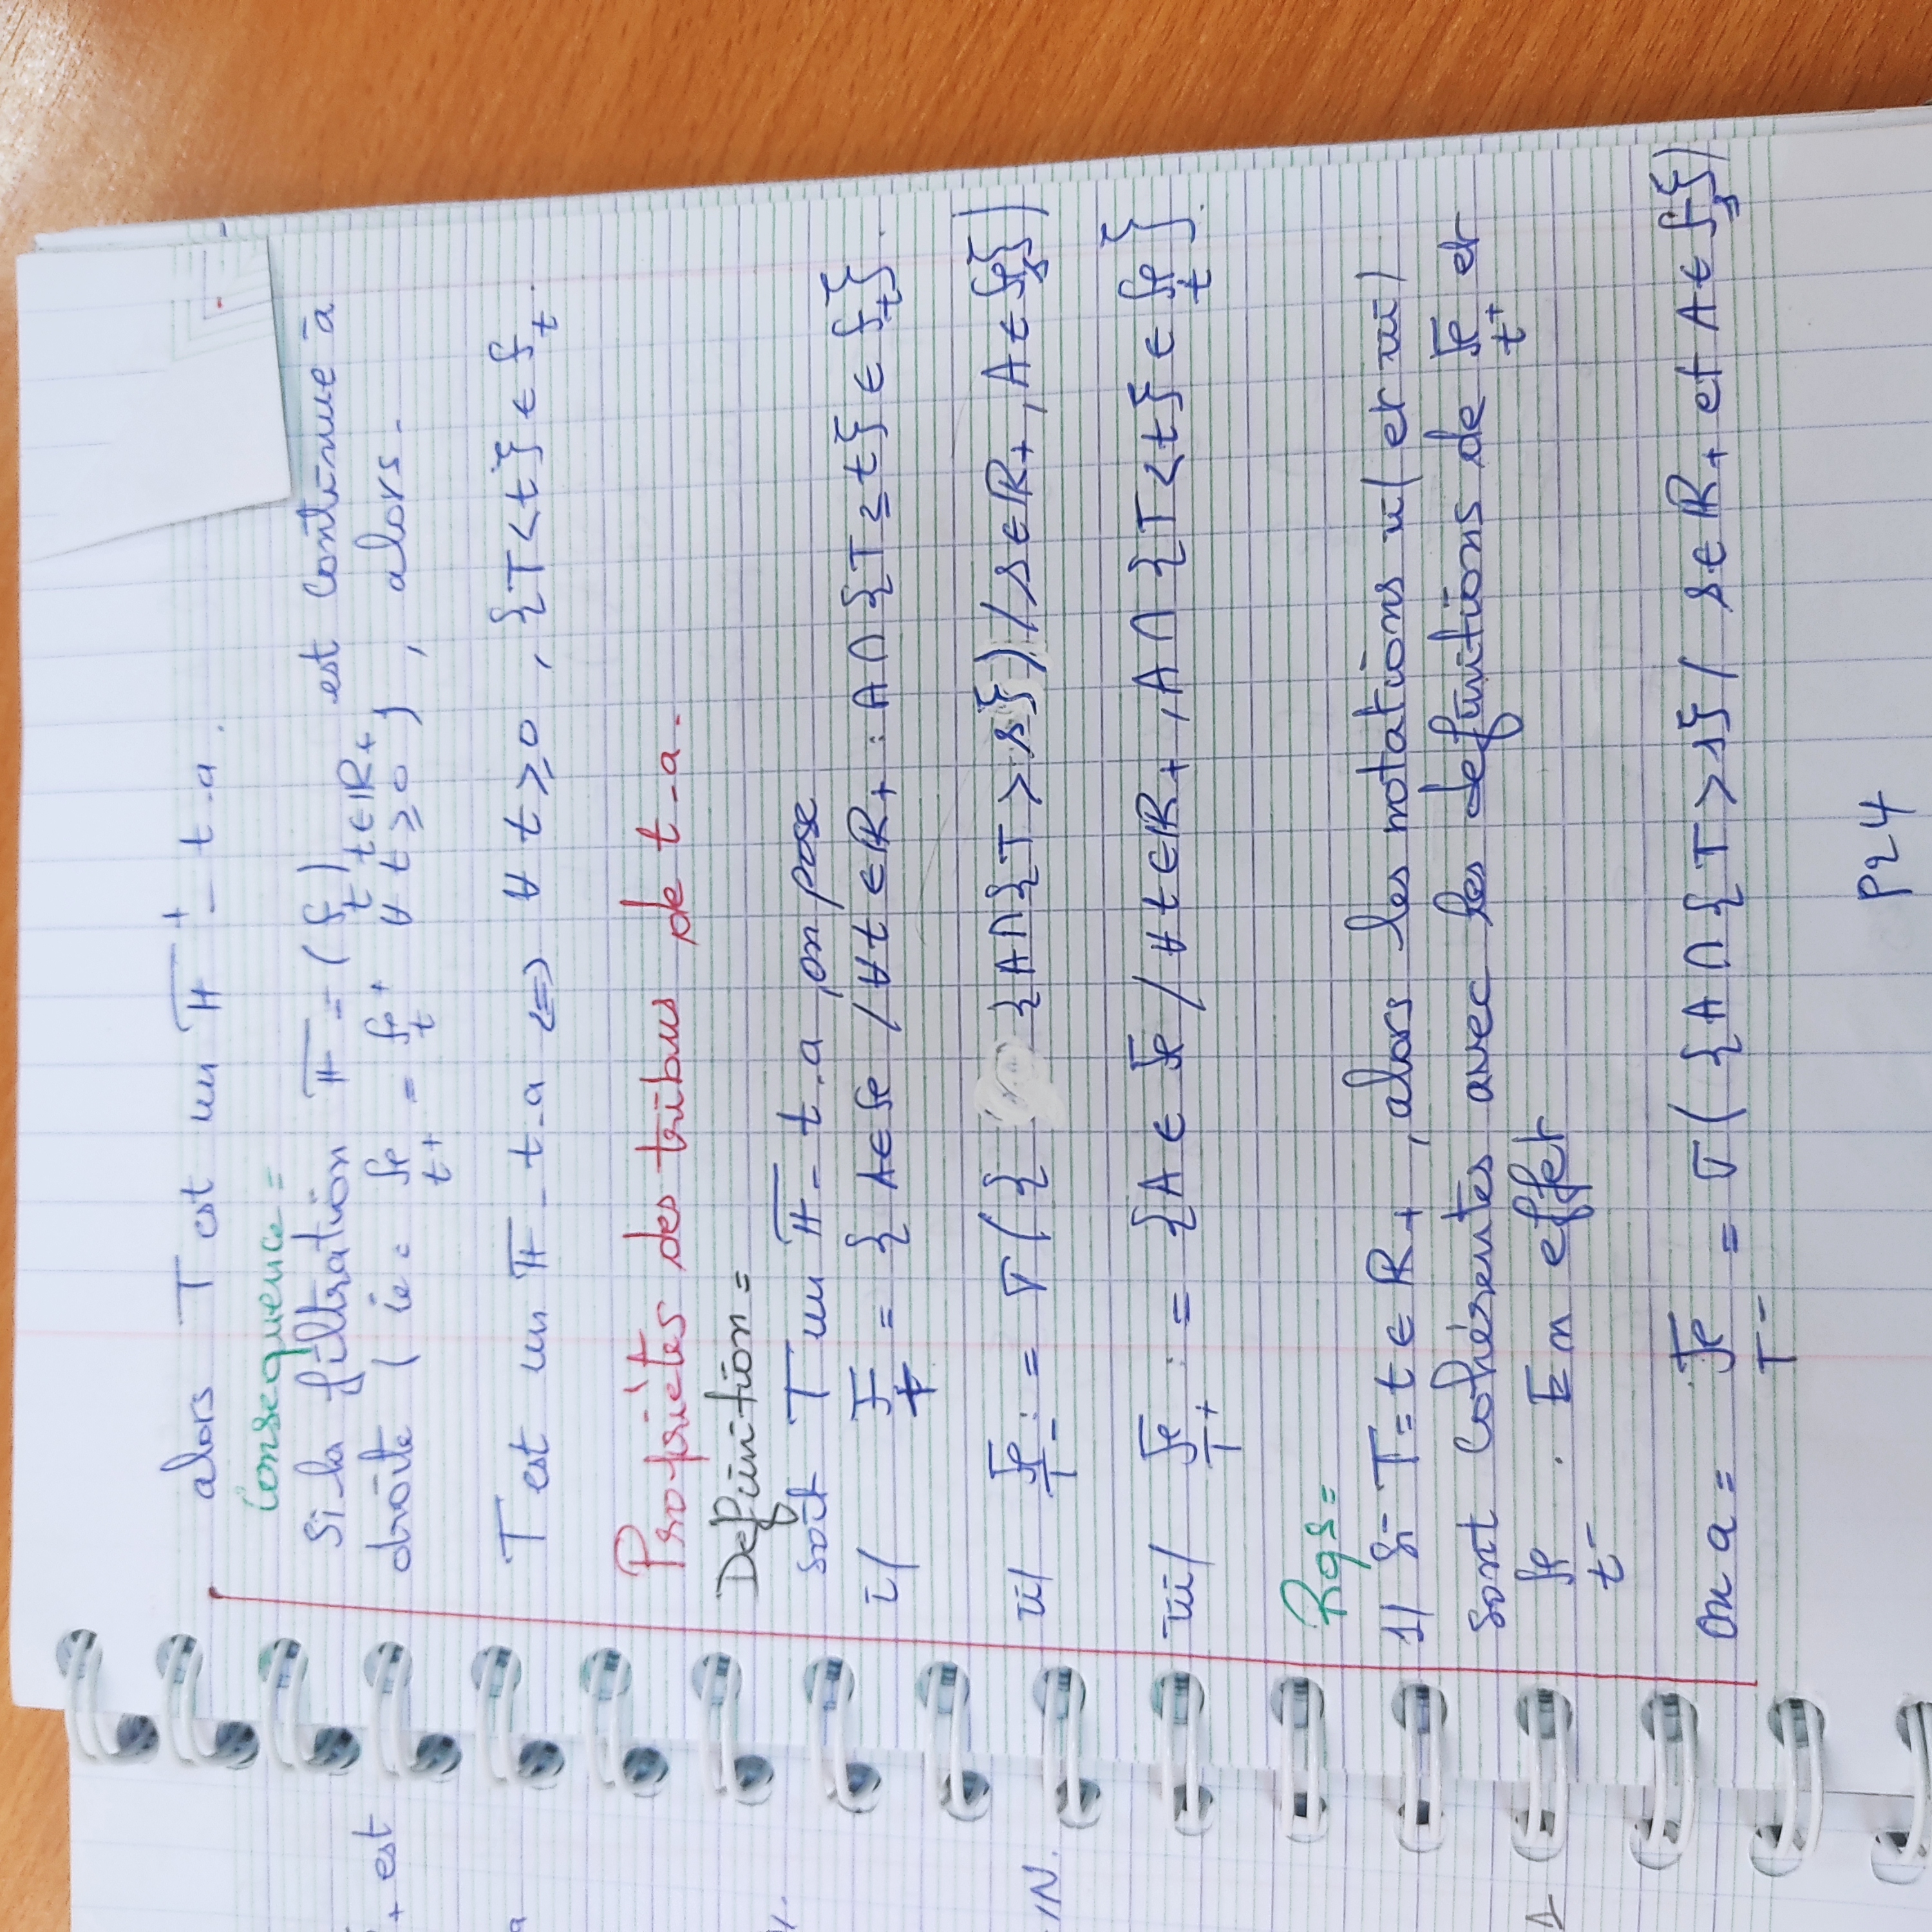 alors T est un 𝔽⁺ - t-a.
Consequence =
Si la filtration 𝔽 = (f_t)_{t∈ℝ+} est continue à
droite (ie = ℱ_{t+} = ℱ_t⁺ ∀ t ≥ 0), alors.
T est un 𝔽 - t-a ⟺ ∀ t ≥ 0, {T < t} ∈ f_t.
Propriètès des tribus de t-a.
Definition =
soit T un 𝔽 - t-a, on pose
i/ ℱ_T = { A ∈ ℱ / ∀t ∈ ℝ+ : A ∩ {T ≤ t} ∈ f_t}.
ii/ ℱ_{T-} := σ({ {A ∩ {T > s}) / s ∈ ℝ+, A ∈ ℱ_s})
iii/ ℱ_{T+} := {A ∈ ℱ / ∀ t ∈ ℝ+, A ∩ {T < t} ∈ ℱ_t}.
Rqs =
1/ Si T = t ∈ ℝ+, alors les notations ii/ et iii/
sont cohérentes avec les definitions de ℱ_{t+} et
ℱ_{t-}. En effet
on a = ℱ_{T-} = σ({A ∩ {T > s} / s ∈ ℝ+ et A ∈ f_s})
P24
+ est
a
/N.
1